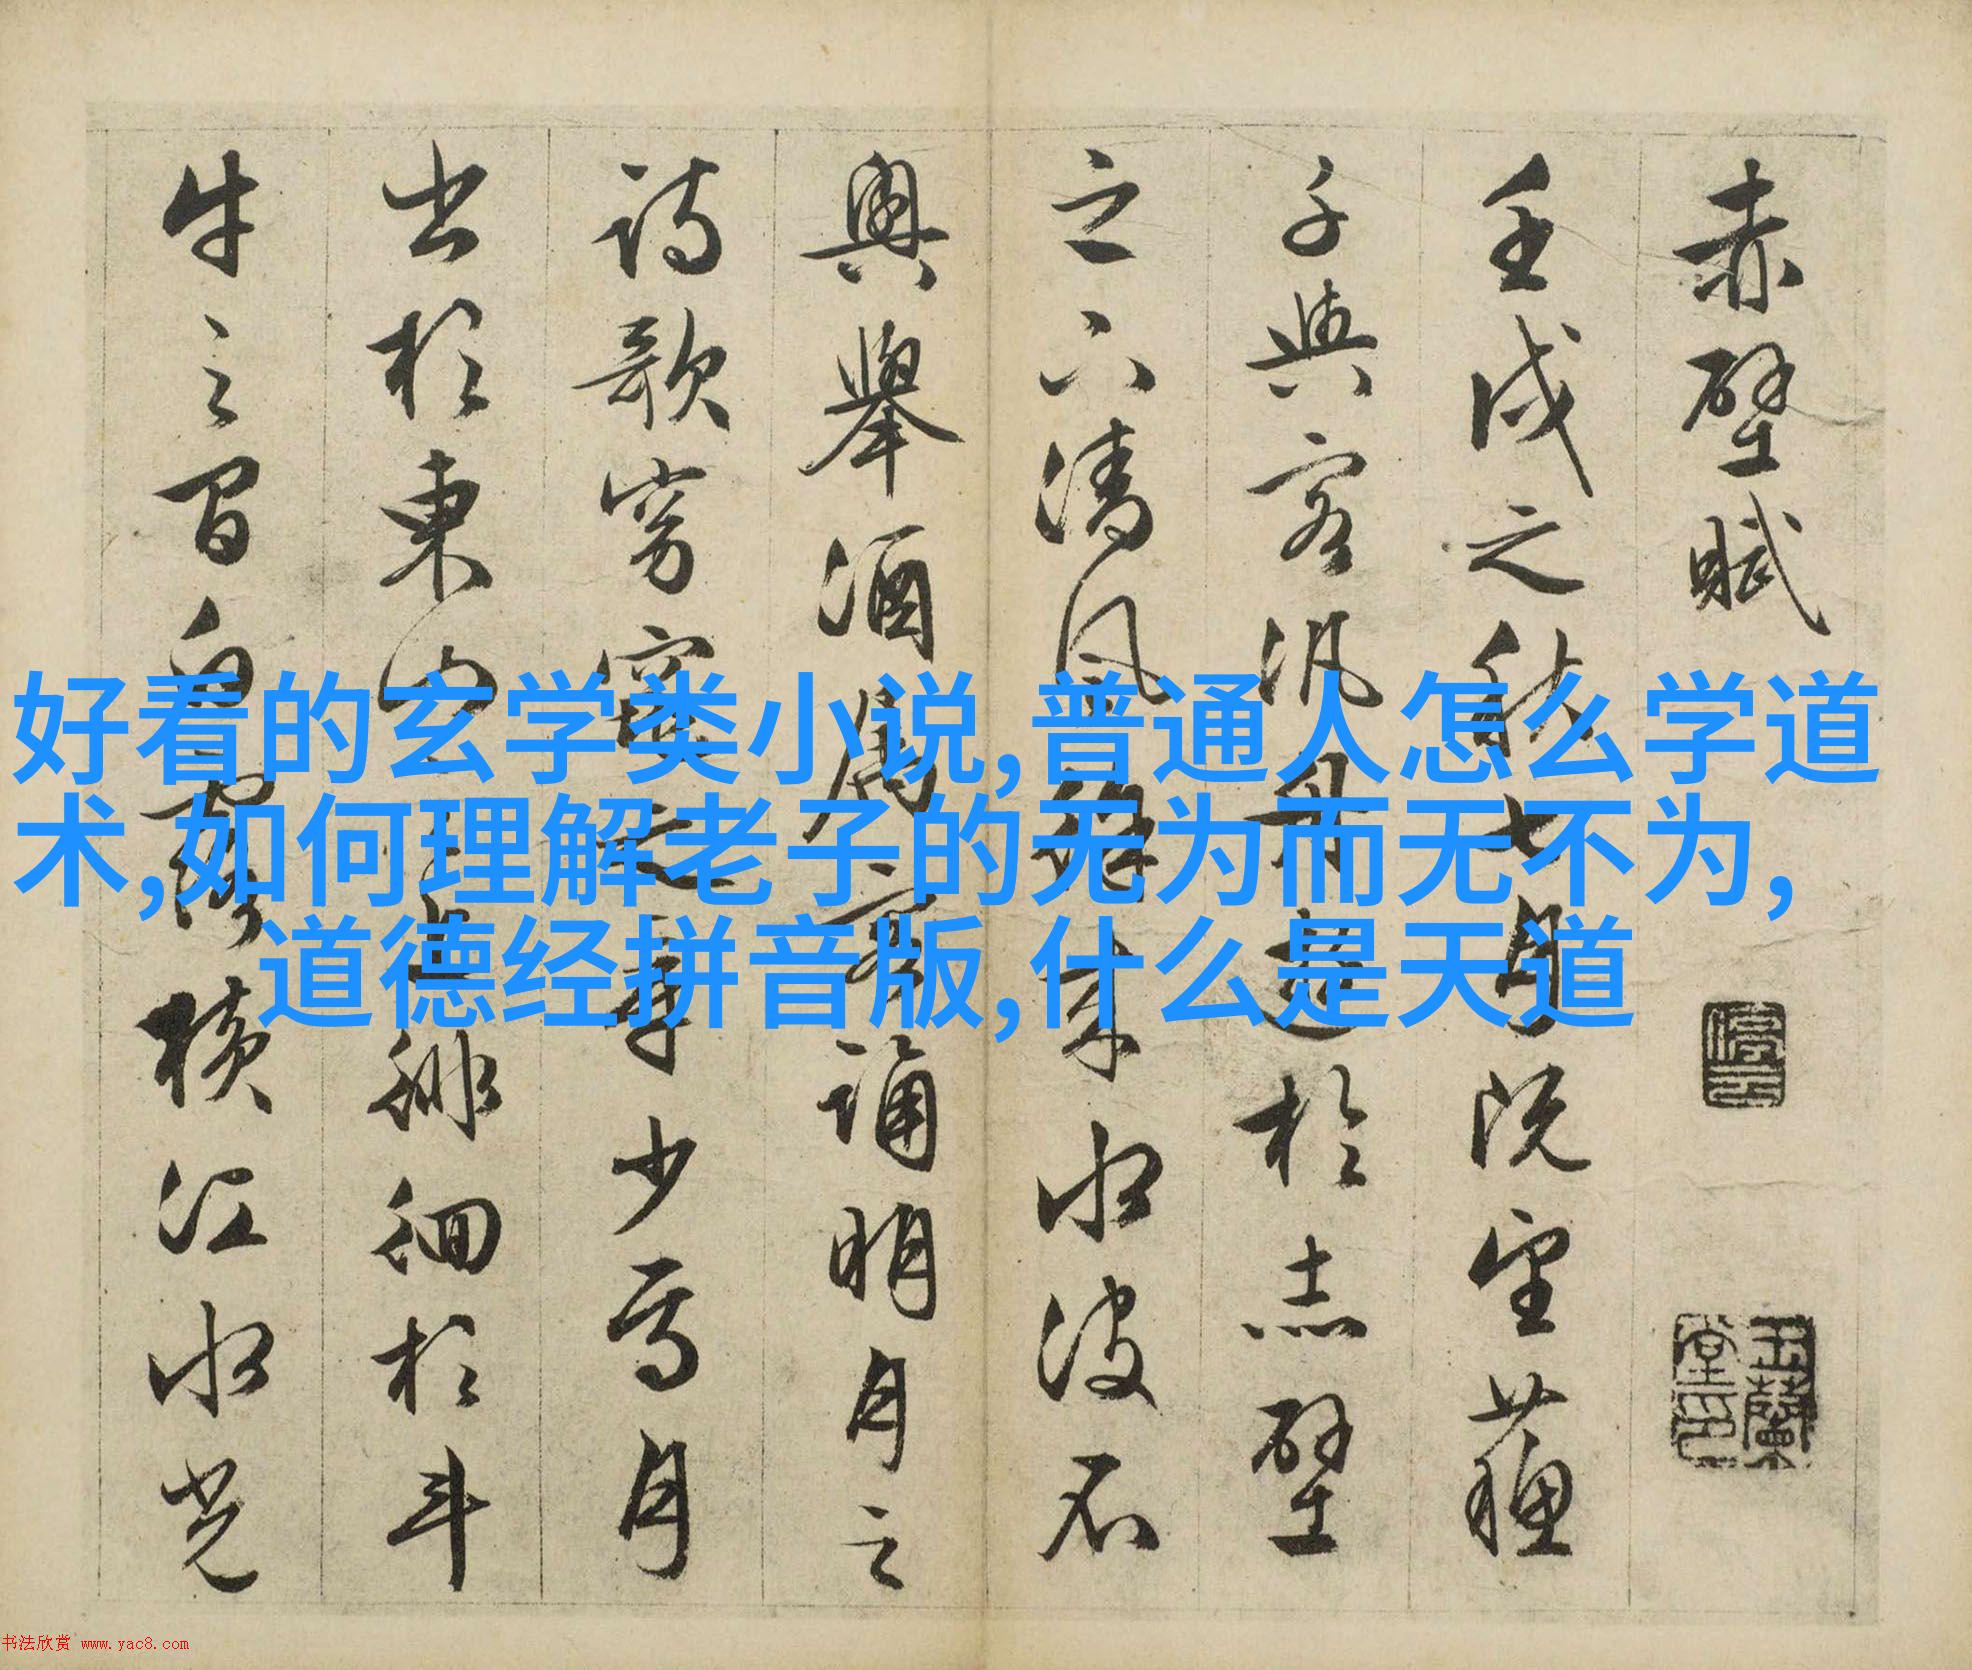 赤壁賦
壬戌之秋七月既望蘇
子與客汎舟遊於赤壁
之下清風徐來水波不
興舉酒屬客誦明月之
詩歌窈窕之章少焉月
出於東山之上徘徊於斗
牛之間白露橫江水光
停云
玉蘭堂印
好看的玄学类小说,普通人怎么学道
术,如何理解老子的无为而无不为,
道德经拼音版,什么是天道
书法欣赏 www.yac8.com